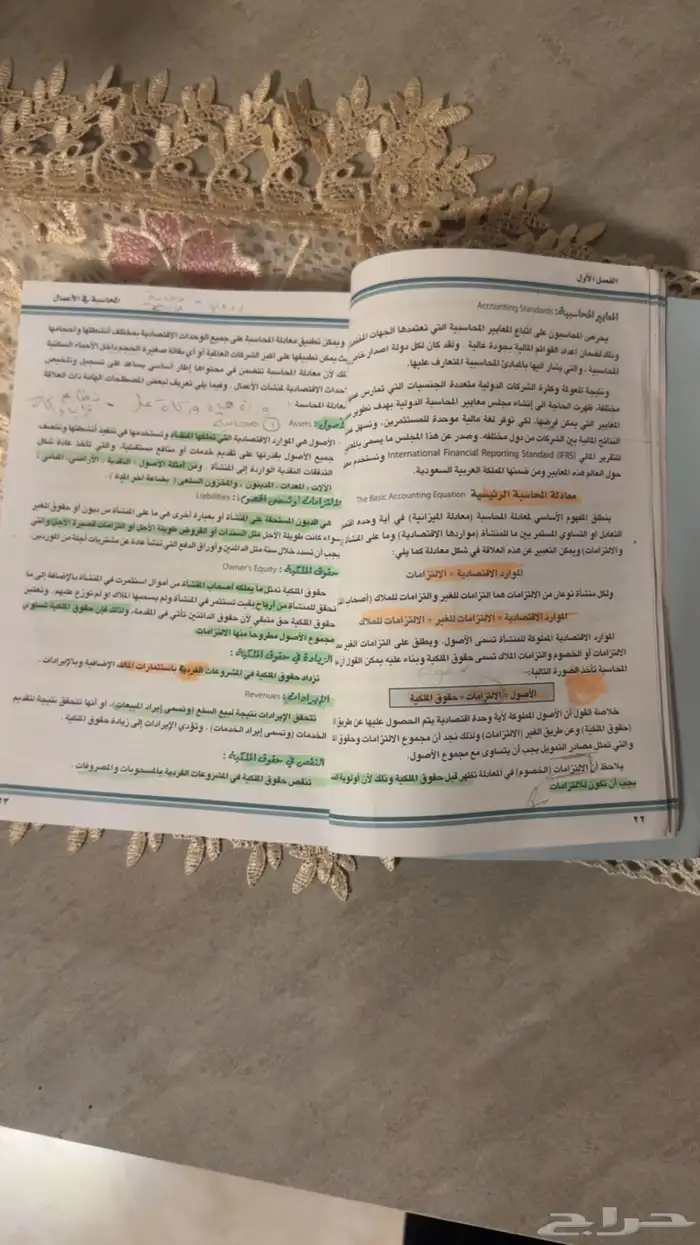 الفصل الأول
المعايير المحاسبية: Accounting Standards
يحرص المحاسبون على اتباع المعايير المحاسبية التي تعتمدها الجهات
وذلك لضمان اعداد القوائم المالية بجودة عالية . ولقد كان لكل دولة اصدار خاص
المحاسبية ، والتي يشار اليها بالمبادئ المحاسبية المتعارف عليها.
ونتيجة للعولمة وكثرة الشركات الدولية متعددة الجنسيات التي تمارس
مختلفة، ظهرت الحاجة الى إنشاء مجلس معايير المحاسبة الدولية بهدف تطوير
المعايير التي يمكن فرضها، لكي توفر لغة مالية موحدة للمستثمرين، وتسهل
النتائج المالية بين الشركات من دول مختلفة. وصدر عن هذا المجلس ما يسمى
للتقرير المالي International Financial Reporting Standard (IFRS) وتستخدم
حول العالم هذه المعايير ومن ضمنها المملكة العربية السعودية.
معادلة المحاسبة الرئيسية The Basic Accounting Equation
ينطلق المفهوم الأساسي لمعادلة المحاسبة (معادلة الميزانية) في أية وحده
التعادل او التساوي المستمر بين ما للمنشأة (مواردها الاقتصادية) وما على المنشأة
والالتزامات) ويمكن التعبير عن هذه العلاقة في شكل معادلة كما يلي:
الموارد الاقتصادية = الالتزامات
ولكل منشأة نوعان من الالتزامات هما التزامات للغير والتزامات للملاك (أصحاب
الموارد الاقتصادية = الالتزامات للغير + الالتزامات للملاك
الموارد الاقتصادية المملوكة للمنشأة تسمى الأصول. ويطلق على التزامات الغير
الالتزامات أو الخصوم والتزامات الملاك تسمى حقوق الملكية وبناء عليه يمكن القول
المحاسبة تأخذ الصورة التالية:-
الأصول = الالتزامات + حقوق الملكية
خلاصة القول أن الأصول المملوكة لأية وحدة اقتصادية يتم الحصول عليها عن طريق
(حقوق الملكية) وعن طريق الغير (الالتزامات) ولذلك نجد أن مجموع الالتزامات وحقوق
والتي تمثل مصادر التمويل يجب أن يتساوى مع مجموع الأصول.
يلاحظ أن الالتزامات (الخصوم) في المعادلة تظهر قبل حقوق الملكية وذلك لأن أولوية
يجب أن تكون للالتزامات
٢٢
المحاسبة في الأعمال
ويمكن تطبيق معادلة المحاسبة على جميع الوحدات الاقتصادية بمختلف أنشطتها وأحجامها
يمكن تطبيقها على أكبر الشركات العالمية أو أي بقالة صغيرة الحجم داخل الأحياء السكنية
لأن معادلة المحاسبة تتضمن في محتواها إطار أساسي يساعد على تسجيل وتلخيص
الاقتصادية لمنشآت الأعمال . وفيما يلي تعريف لبعض المصطلحات الهامة ذات العلاقة
المحاسبة :
الأصول: Assets
الأصول هي الموارد الاقتصادية التي تملكها المنشأة وتستخدمها في تنفيذ أنشطتها وتتصف
جميع الأصول بقدرتها على تقديم خدمات أو منافع مستقبلية، والتي تأخذ عادة شكل
التدفقات النقدية الواردة إلى المنشأة . ومن أمثلة الأصول : النقدية ، الأراضي، المباني ،
الآلات ، المعدات ، المدينون ، والمخزون السلعي ( بضاعة آخر المدة ) .
Liabilities :
هي الديون المستحقة على المنشأة أو بعبارة أخرى هي ما على المنشأة من ديون أو حقوق للغير
سواء كانت طويلة الأجل مثل السندات أو القروض طويلة الأجل أو التزامات قصيرة الأجل والتي
يجب أن تسدد خلال سنة مثل الدائنين وأوراق الدفع التي تنشأ عادة عن مشتريات آجلة من الموردين.
حقوق الملكية : Owner's Equity
حقوق الملكية تمثل ما يملكه أصحاب المنشأة من أموال استثمرت في المنشأة بالإضافة إلى ما
تحقق للمنشأة من أرباح بقيت تستثمر في المنشأة ولم يسحبها الملاك أو لم توزع عليهم . وتعتبر
حقوق الملكية حق متبقي لأن حقوق الدائنين تأتي في المقدمة، ولذلك فإن حقوق الملكية تساوي
مجموع الأصول مطروحاً منها الالتزامات
الزيادة في حقوق الملكية :
تزداد حقوق الملكية في المشروعات الفردية باستثمارات المالك الإضافية وبالإيرادات .
الإيرادات: Revenues
تتحقق الإيرادات نتيجة لبيع السلع (وتسمى إيراد المبيعات)، أو أنها تتحقق نتيجة لتقديم
الخدمات (وتسمى إيراد الخدمات) ، وتؤدي الإيرادات إلى زيادة حقوق الملكية .
النقص في حقوق الملكية :
تنقص حقوق الملكية في المشروعات الفردية بالمسحوبات وبالمصروفات .
٢٣
حراج